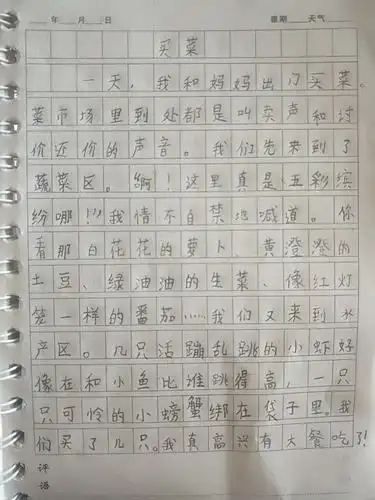 年 月 日 星期 天气
买菜
一天，我和妈妈出门买菜。
菜市场里到处都是叫卖声和讨
价还价的声音。我们先来到了
蔬菜区。啊！这里真是五彩缤
纷哪!!!我情不自禁地喊道。你
看那白花花的萝卜、黄澄澄的
土豆、绿油油的生菜、像红灯
笼一样的番茄……我们又来到水
产区。几只活蹦乱跳的小虾好
像在和小鱼比谁跳得高，一只
只可怜的小螃蟹绑在袋子里。我
们买了几只。我真高兴有大餐吃了!
评
语